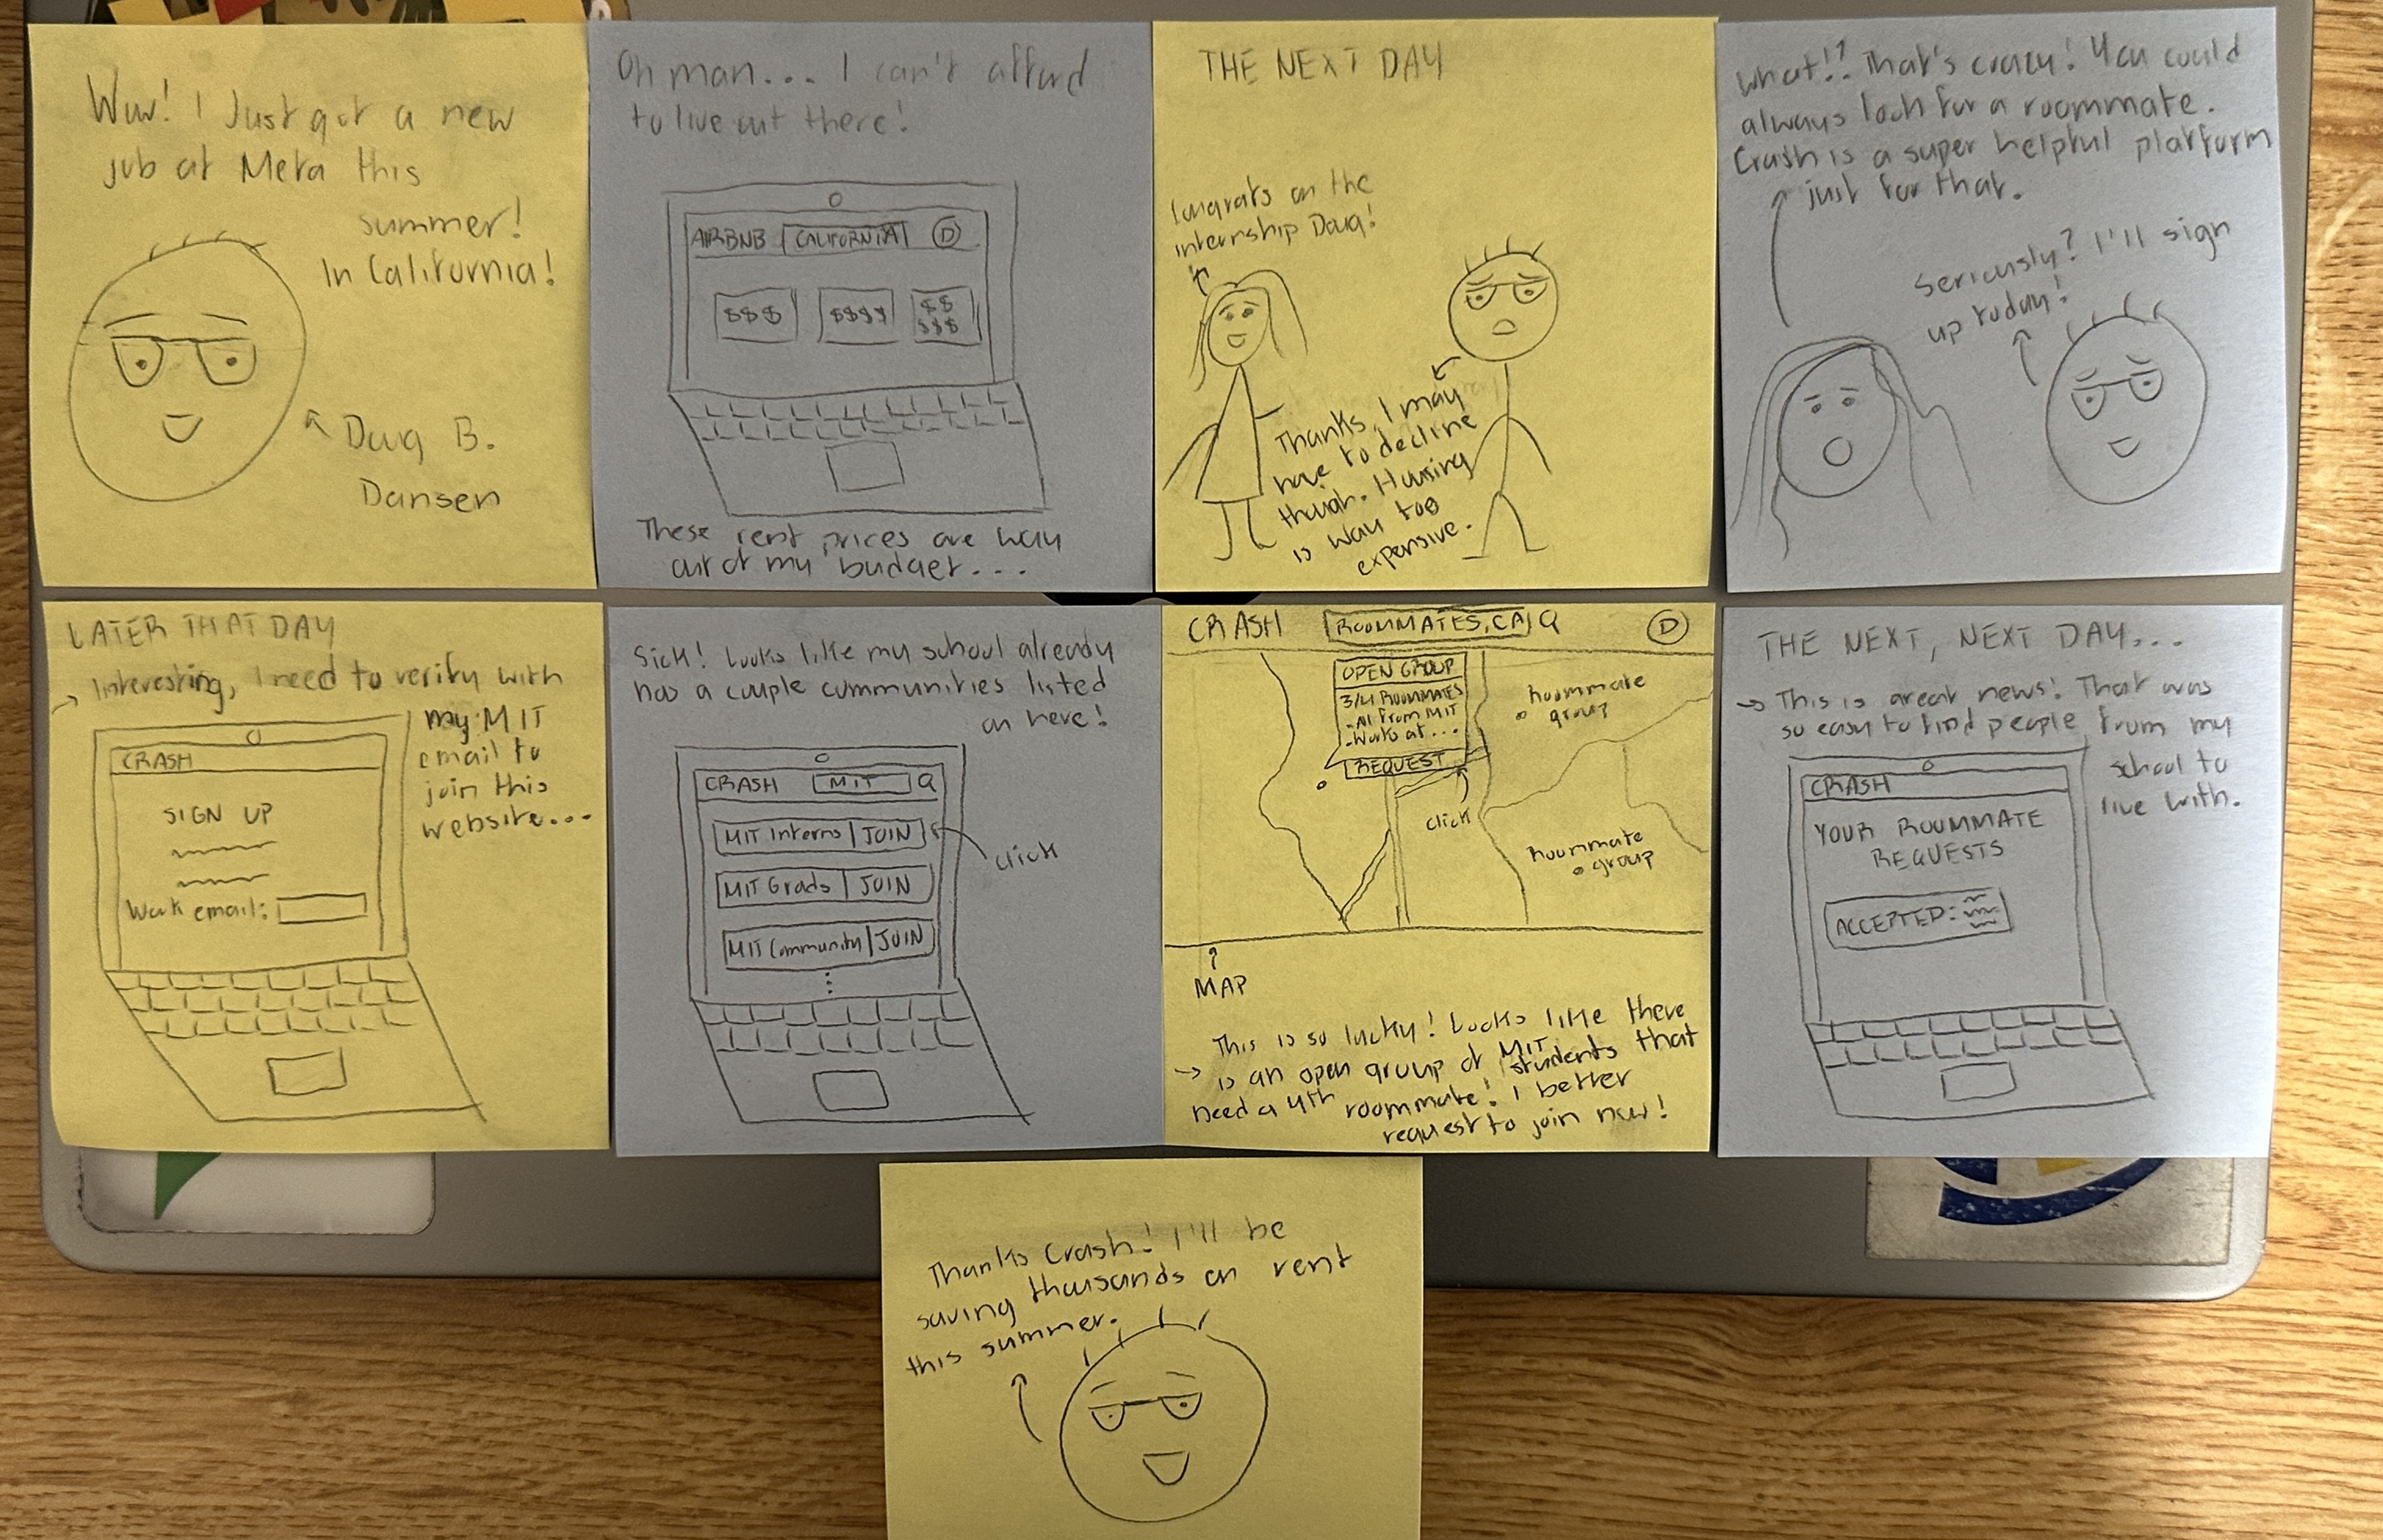 Wow! I Just got a new
job at Meta this
summer!
In California!
Doug B.
Dansen
Oh man... I can't afford
to live out there!
AIRBNB CALIFORNIA D
$$$ $$$$ $$
$$$
These rent prices are way
out of my budget...
THE NEXT DAY
Congrats on the
internship Doug!
Thanks, I may
have to decline
though. Housing
is way too
expensive.
What!? That's crazy! You could
always look for a roommate.
Crash is a super helpful platform
just for that.
Seriously? I'll sign
up today!
LATER THAT DAY
Interesting, I need to verify with
my MIT
email to
join this
website...
CRASH
SIGN UP
Work email:
Sick! Looks like my school already
has a couple communities listed
on here!
CRASH MIT
MIT Interns JOIN
click
MIT Grads JOIN
MIT Community JOIN
CRASH ROOMMATES, CA D
OPEN GROUP
3/4 ROOMMATES
-All from MIT
-Works at...
REQUEST
click
Roommate
group
Roommate
group
MAP
This is so lucky! Looks like there
is an open group of MIT students that
need a 4th roommate! I better
request to join now!
THE NEXT, NEXT DAY...
This is great news! That was
so easy to find people from my
school to
live with.
CRASH
YOUR ROOMMATE
REQUESTS
ACCEPTED:
Thanks Crash! I'll be
saving thousands on rent
this summer.